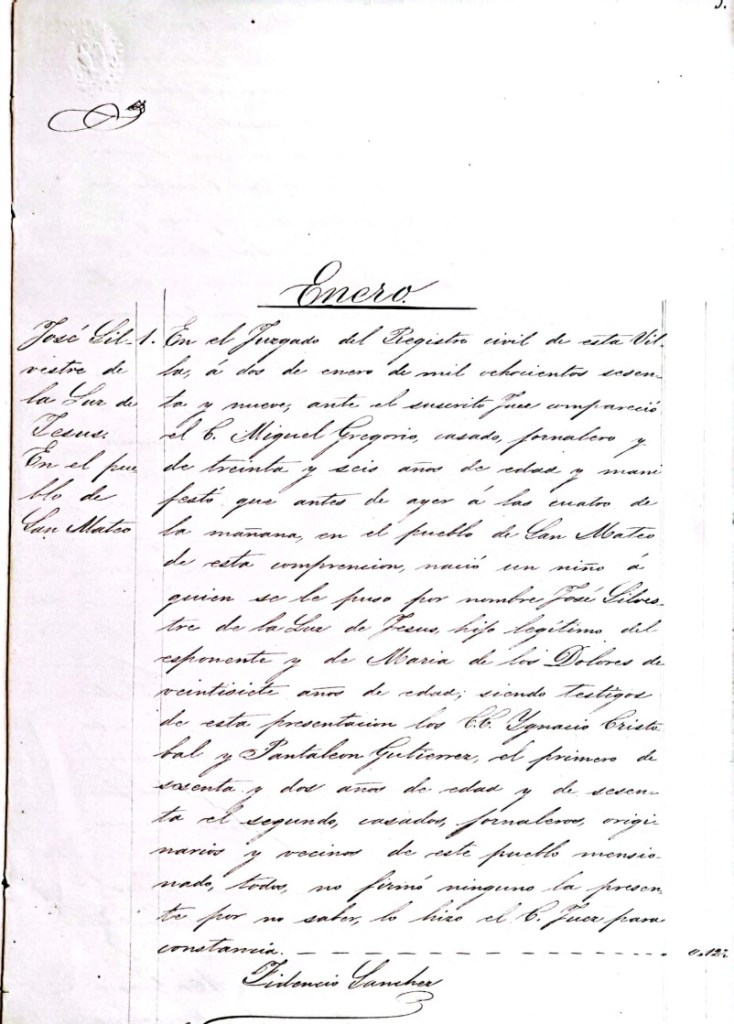 3.
Enero.
José Sil-
vestre de
la Luz de
Jesus.
En el pue
blo de
San Mateo
1. En el Juzgado del Registro civil de esta Vi-
lla, á dos de enero de mil ochocientos sesen-
ta y nueve, ante el suscrito Juez compareció
el C. Miguel Gregorio, casado, jornalero y
de treinta y seis años de edad y mani
festó que antes de ayer á las cuatro de
la mañana, en el pueblo de San Mateo
de esta comprencion, nació un niño á
quien se le puso por nombre José Silves-
tre de la Luz de Jesus, hijo legítimo del
esponente y de Maria de los Dolores de
veintisiete años de edad; siendo testigos
de esta presentacion los C.C. Ygnacio Cristo
bal y Pantaleon Gutierrez, el primero de
sesenta y dos años de edad y de sesen-
ta el segundo, casados, jornaleros, origi
narios y vecinos de este pueblo mensio-
nado, todos, no firmó ninguno la presen-
te por no saber, lo hizo el C. Juez para
constancia. — — — — — — — — — .
Fidencio Sanchez